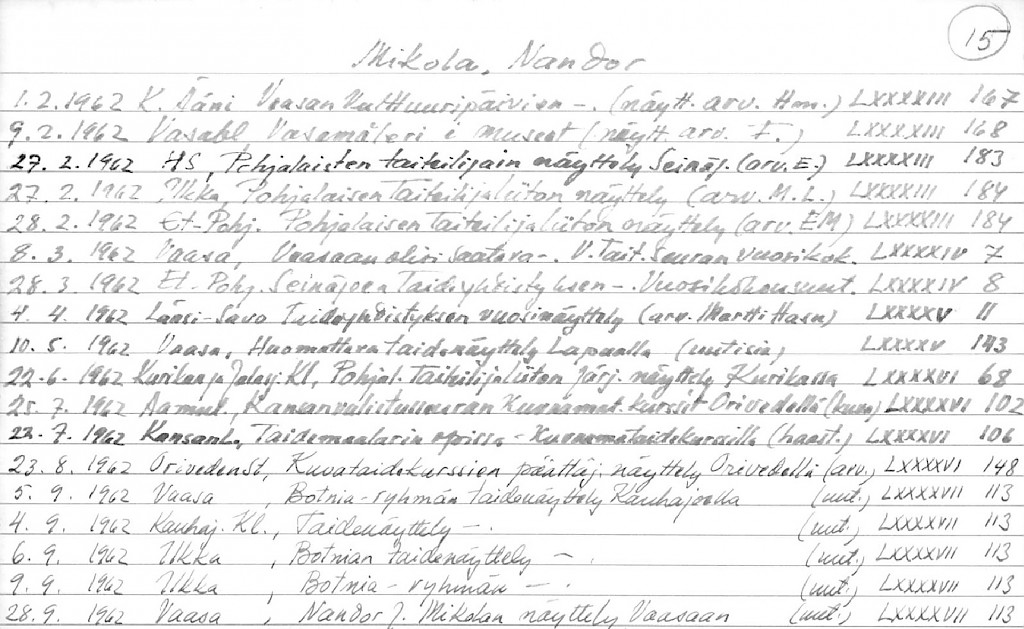 15
Mikola, Nandor
1.2.1962 K. Ääni Vaasan Kulttuuripäivien -. (näytt. arv. Hm.) LXXXXIII 167
9.2.1962 Vasabl. Vasamåleri i museet (näytt arv. F.) LXXXXIII 168
27.2.1962 HS, Pohjalaisten taiteilijain näyttely Seinäj. (arv. E.) LXXXXIII 183
27.2.1962 Ilkka, Pohjalaisen Taiteilijaliiton näyttely (arv. M.L.) LXXXXIII 184
28.2.1962 Et-Pohj. Pohjalaisen Taiteilijaliiton näyttely (arv. EM) LXXXXIII 184
8.3.1962 Vaasa, Vaasaan olisi saatava -. V. Tait. Seuran vuosikok. LXXXXIV 7
28.3.1962 Et-Pohj. Seinäjoen Taideyhdistyksen -. LXXXXIV 8
4.4.1962 Länsi-Savo Taideyhdistyksen vuosinäyttely (arv. Martti Hasu) LXXXXV 11
10.5.1962 Vaasa, Huomattava taidenäyttely Lapualla (uutisia) LXXXXV 143
22.6.1962 Kurikan ja Jalasj. Kl, Pohjal. Taiteilijaliiton järj. näyttely Kurikassa LXXXXVI 68
25.7.1962 Aamul., Kansanvalistusseuran kurssit Orivedellä (kuva) LXXXXVI 102
22.7.1962 Kansanl., Taidemaalarin opissa - Kuvaamataidekurssilla (haast.) LXXXXVI 106
23.8.1962 OrivedenSt, Kuvataidekurssien päättäj. näyttely Orivedellä (arv.) LXXXXVI 148
5.9.1962 Vaasa, Botnia-ryhmän taidenäyttely Kauhajoella (uut.) LXXXXVII 113
4.9.1962 Kauhaj. Kl., Taidenäyttely -. (uut.) LXXXXVII 113
6.9.1962 Ilkka, Botnian taidenäyttely -. (uut.) LXXXXVII 113
9.9.1962 Ilkka, Botnia-ryhmän -. (uut.) LXXXXVII 113
28.9.1962 Vaasa, Nandor J. Mikolan näyttely Vaasaan (uut.) LXXXXVII 113